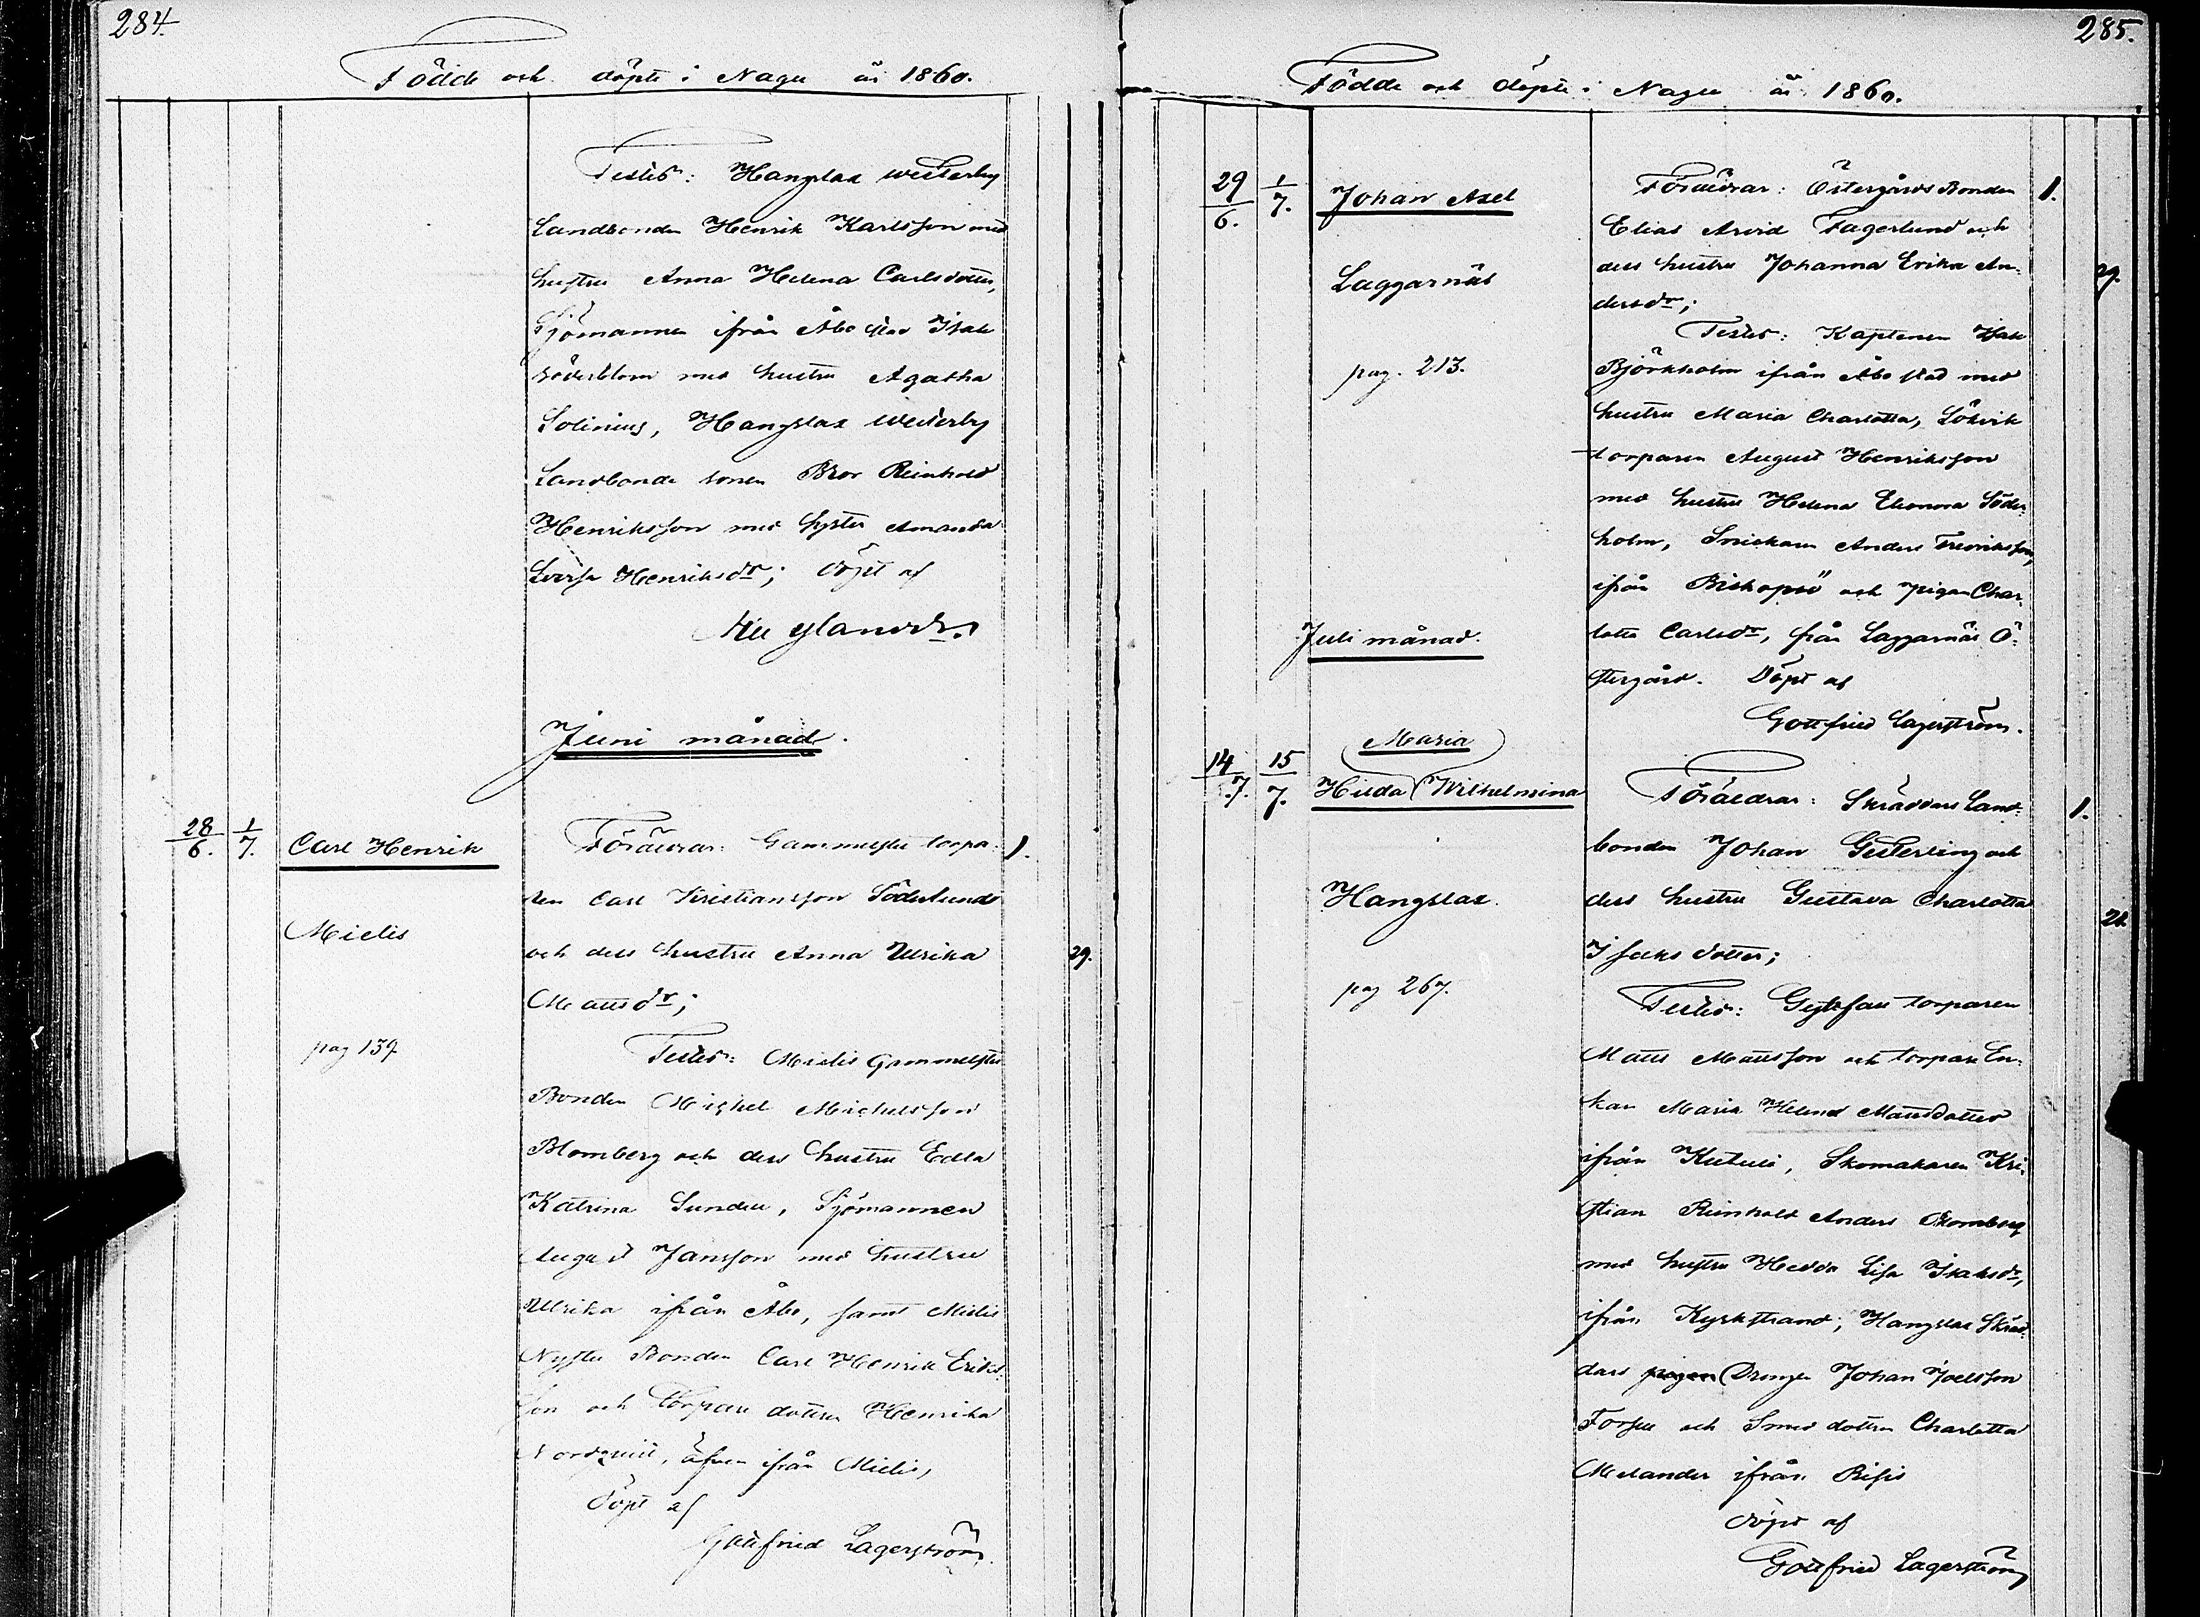 284.
Födde och döpte i Nagu år 1860.
Testes: Hangslax Westerby
Landbonden Henrik Karlsson med
hustru Anna Helena Carlsdotter,
Sjömannen ifrån Åbo stad Isak
Söderblom med hustru Agatha
Solinius, Hangslax Westerby
Landbonde sonen Bror Reinhold
Henriksson med syster Amanda
Lovisa Henriksdr; Döpt af
Juni månad.
28/6. 1/7. Carl Henrik
Föräldrar: Gammelste torpa- 1.
ren Carl Kristiansson Söderlund
Mielis
och dess hustru Anna Ulrika 29.
Mattsdr;
pag 139
Testes: Mielis Gammelste
Bonden Michel Michelsson
Blomberg och dess hustru Edla
Katrina Sundell, Sjömannen
August Jansson med hustru
Ulrika ifrån Åbo, samt Mielis
Nyste Bonden Carl Henrik Eriks-
son och torpare dottren Henrika
Nordqvist, äfven ifrån Mielis,
Döpt af
Gottfried Lagerström.
285.
Födde och döpte i Nagu år 1860.
29/6. 1/7. Johan Axel
Föräldrar: Östergårds Bonden 1.
Elias Arvid Fagerlund och
dess hustru Johanna Erika An- 29.
Laggarnäs
dersdr;
Testes: Kaptenen Isak
pag. 213.
Björkholm ifrån Åbo stad med
hustru Maria Charlotta, Sökvik
torparen August Henriksson
med hustru Helena Eleonora Söder-
holm, Snickaren Anders Fredriksson,
ifrån Biskopsö och pigan Char-
lotta Carlsdr, från Laggarnäs Ö-
Juli månad.
stergård. Döpt af
Gottfried Lagerström.
Maria
14/7. 15/7. Hilda (Wilhelmina
Föräldrar: Skräddars Land- 1.
bonden Johan Gesterling och
Hangslax.
dess hustru Gustava Charlotta 28.
Isaksdotter;
pag 267.
Testes: Gyttjan torparen
Matts Mattsson och torpare En-
kan Maria Helena Mattsdotter
ifrån Kutuis, Skomakaren Kri-
stian Reinhold Anders Blomberg
med hustru Hedda Lisa Isaksdr,
ifrån Kyrkstrand, Hangslax Skräd-
dars pigan (Drengen Johan Joelsson
Forsell och Smed dottren Charlotta
Melander ifrån Risis
döpt af
Gottfried Lagerström